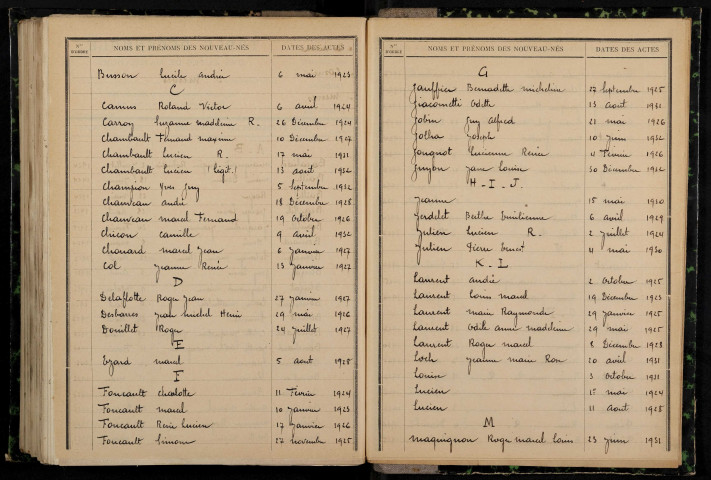 Nos D'ORDRE NOMS ET PRÉNOMS DES NOUVEAU-NÉS DATES DES ACTES
Busson Lucile andrée 6 mai 1923
C
Camus Roland Victor 6 avril 1924
Carroy Suzanne madeleine R. 26 Décembre 1924
Chambault Fernand maxime 10 Décembre 1927
Chambault Lucien R. 17 mai 1931
Chambault Lucien (légit.) 13 août 1932
Champion Yves Guy 5 Septembre 1932
Chauveau andré 18 Décembre 1928
Chauveau marcel Fernand 19 octobre 1926
Chicon camille 9 avril 1932
Chouard marcel Jean 6 Janvier 1927
Col Jeanne Renée 13 Janvier 1927
D
Delaflotte Roger Jean 27 Janvier 1927
Desbarres Jean michel Henri 29 mai 1926
Douillet Roger 24 Juillet 1927
E
Evzard marcel 5 août 1928
F
Foucault charlotte 11 Février 1924
Foucault marcel 10 Janvier 1923
Foucault René Lucien 17 Janvier 1926
Foucault Simone 27 novembre 1925
Nos D'ORDRE NOMS ET PRÉNOMS DES NOUVEAU-NÉS DATES DES ACTES
G
Bernadette micheline 27 Septembre 1925
Giacometti Odette 13 août 1931
Gobin Guy alfred 21 mai 1926
Joseph 10 Juin 1932
Lucienne Renée 4 Février 1926
Guyon Jane Louise 30 Décembre 1932
H - I - J.
Jeanne 15 mai 1930
Berthe Emilienne 6 avril 1929
Julien Lucien R. 2 Juillet 1924
Julien Pierre Ernest 4 mai 1930
K - L
Laurent andré 2 octobre 1925
Laurent Louis marcel 19 Décembre 1923
Laurent marie Raymonde 29 Janvier 1925
Laurent Odile anne madeleine 29 mai 1925
Laurent Roger marcel 8 Décembre 1928
Loch Jeanne marie 20 avril 1931
Louise 3 octobre 1931
Lucien mai 1924
Lucien 11 août 1928
M
maquignon Roger marcel Louis 23 Juin 1931